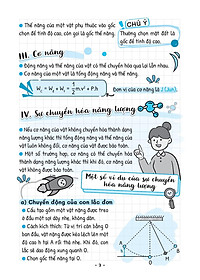 • Thế năng của một vật phụ thuộc vào gốc
tính độ cao, còn gọi là gốc thế năng.
CHÚ Ý
Thường chọn mặt đất là
gốc để tính độ cao.
III. Cơ năng
• Động năng và thế năng của vật có thể chuyển hóa qua lại lẫn nhau.
• Cơ năng của một vật là tổng động năng và thế năng.
W_c = W_đ + W_t = 1/2 m.v² + P.h
Đơn vị của cơ năng là J (Jun).
IV. Sự chuyển hóa năng lượng
• Nếu cơ năng của vật không chuyển hóa thành dạng
năng lượng khác thì tổng động năng và thế năng
của vật không đổi.
• Một số trường hợp, cơ năng có thể chuyển hóa
thành dạng năng lượng khác thì khi đó, cơ năng
của vật không được bảo toàn.
Một số ví dụ của sự chuyển
hóa năng lượng
a) Chuyển động của con lắc đơn
• Cấu tạo gồm một vật nặng được treo
ở đầu một sợi dây nhẹ, không dãn.
• Kích thích: Từ vị trí cân bằng O
ban đầu, vật nặng được kéo lệch lên một độ
cao h tại A rồi thả nhẹ. Khi đó, con
lắc sẽ dao động xung quanh O.
• Chọn gốc thế năng tại O.
A
O
h
- 3 -